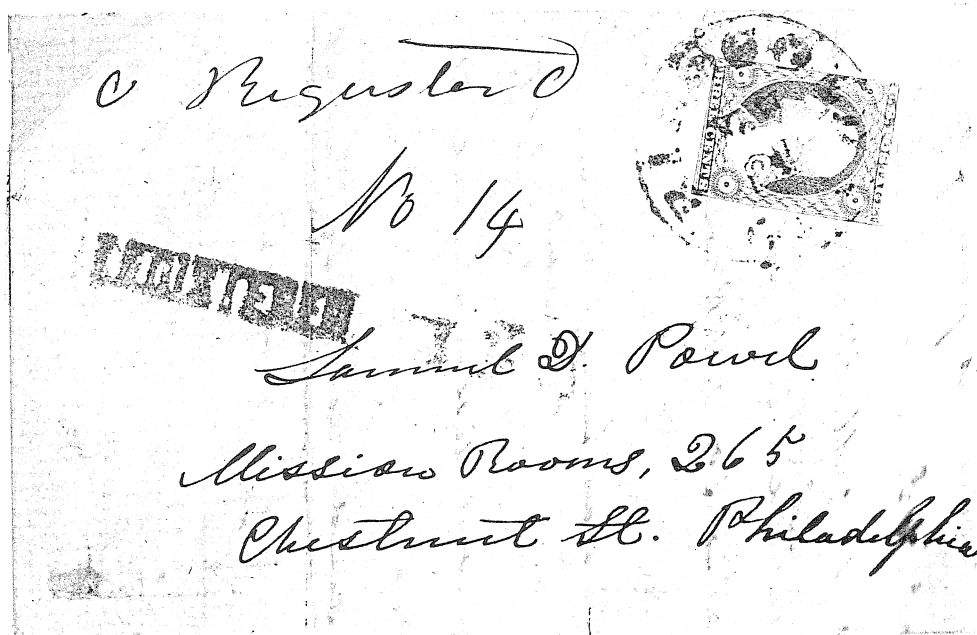 Registered
No 14
Samuel D. Powel
Mission Rooms, 265
Chestnut St. Philadelphia